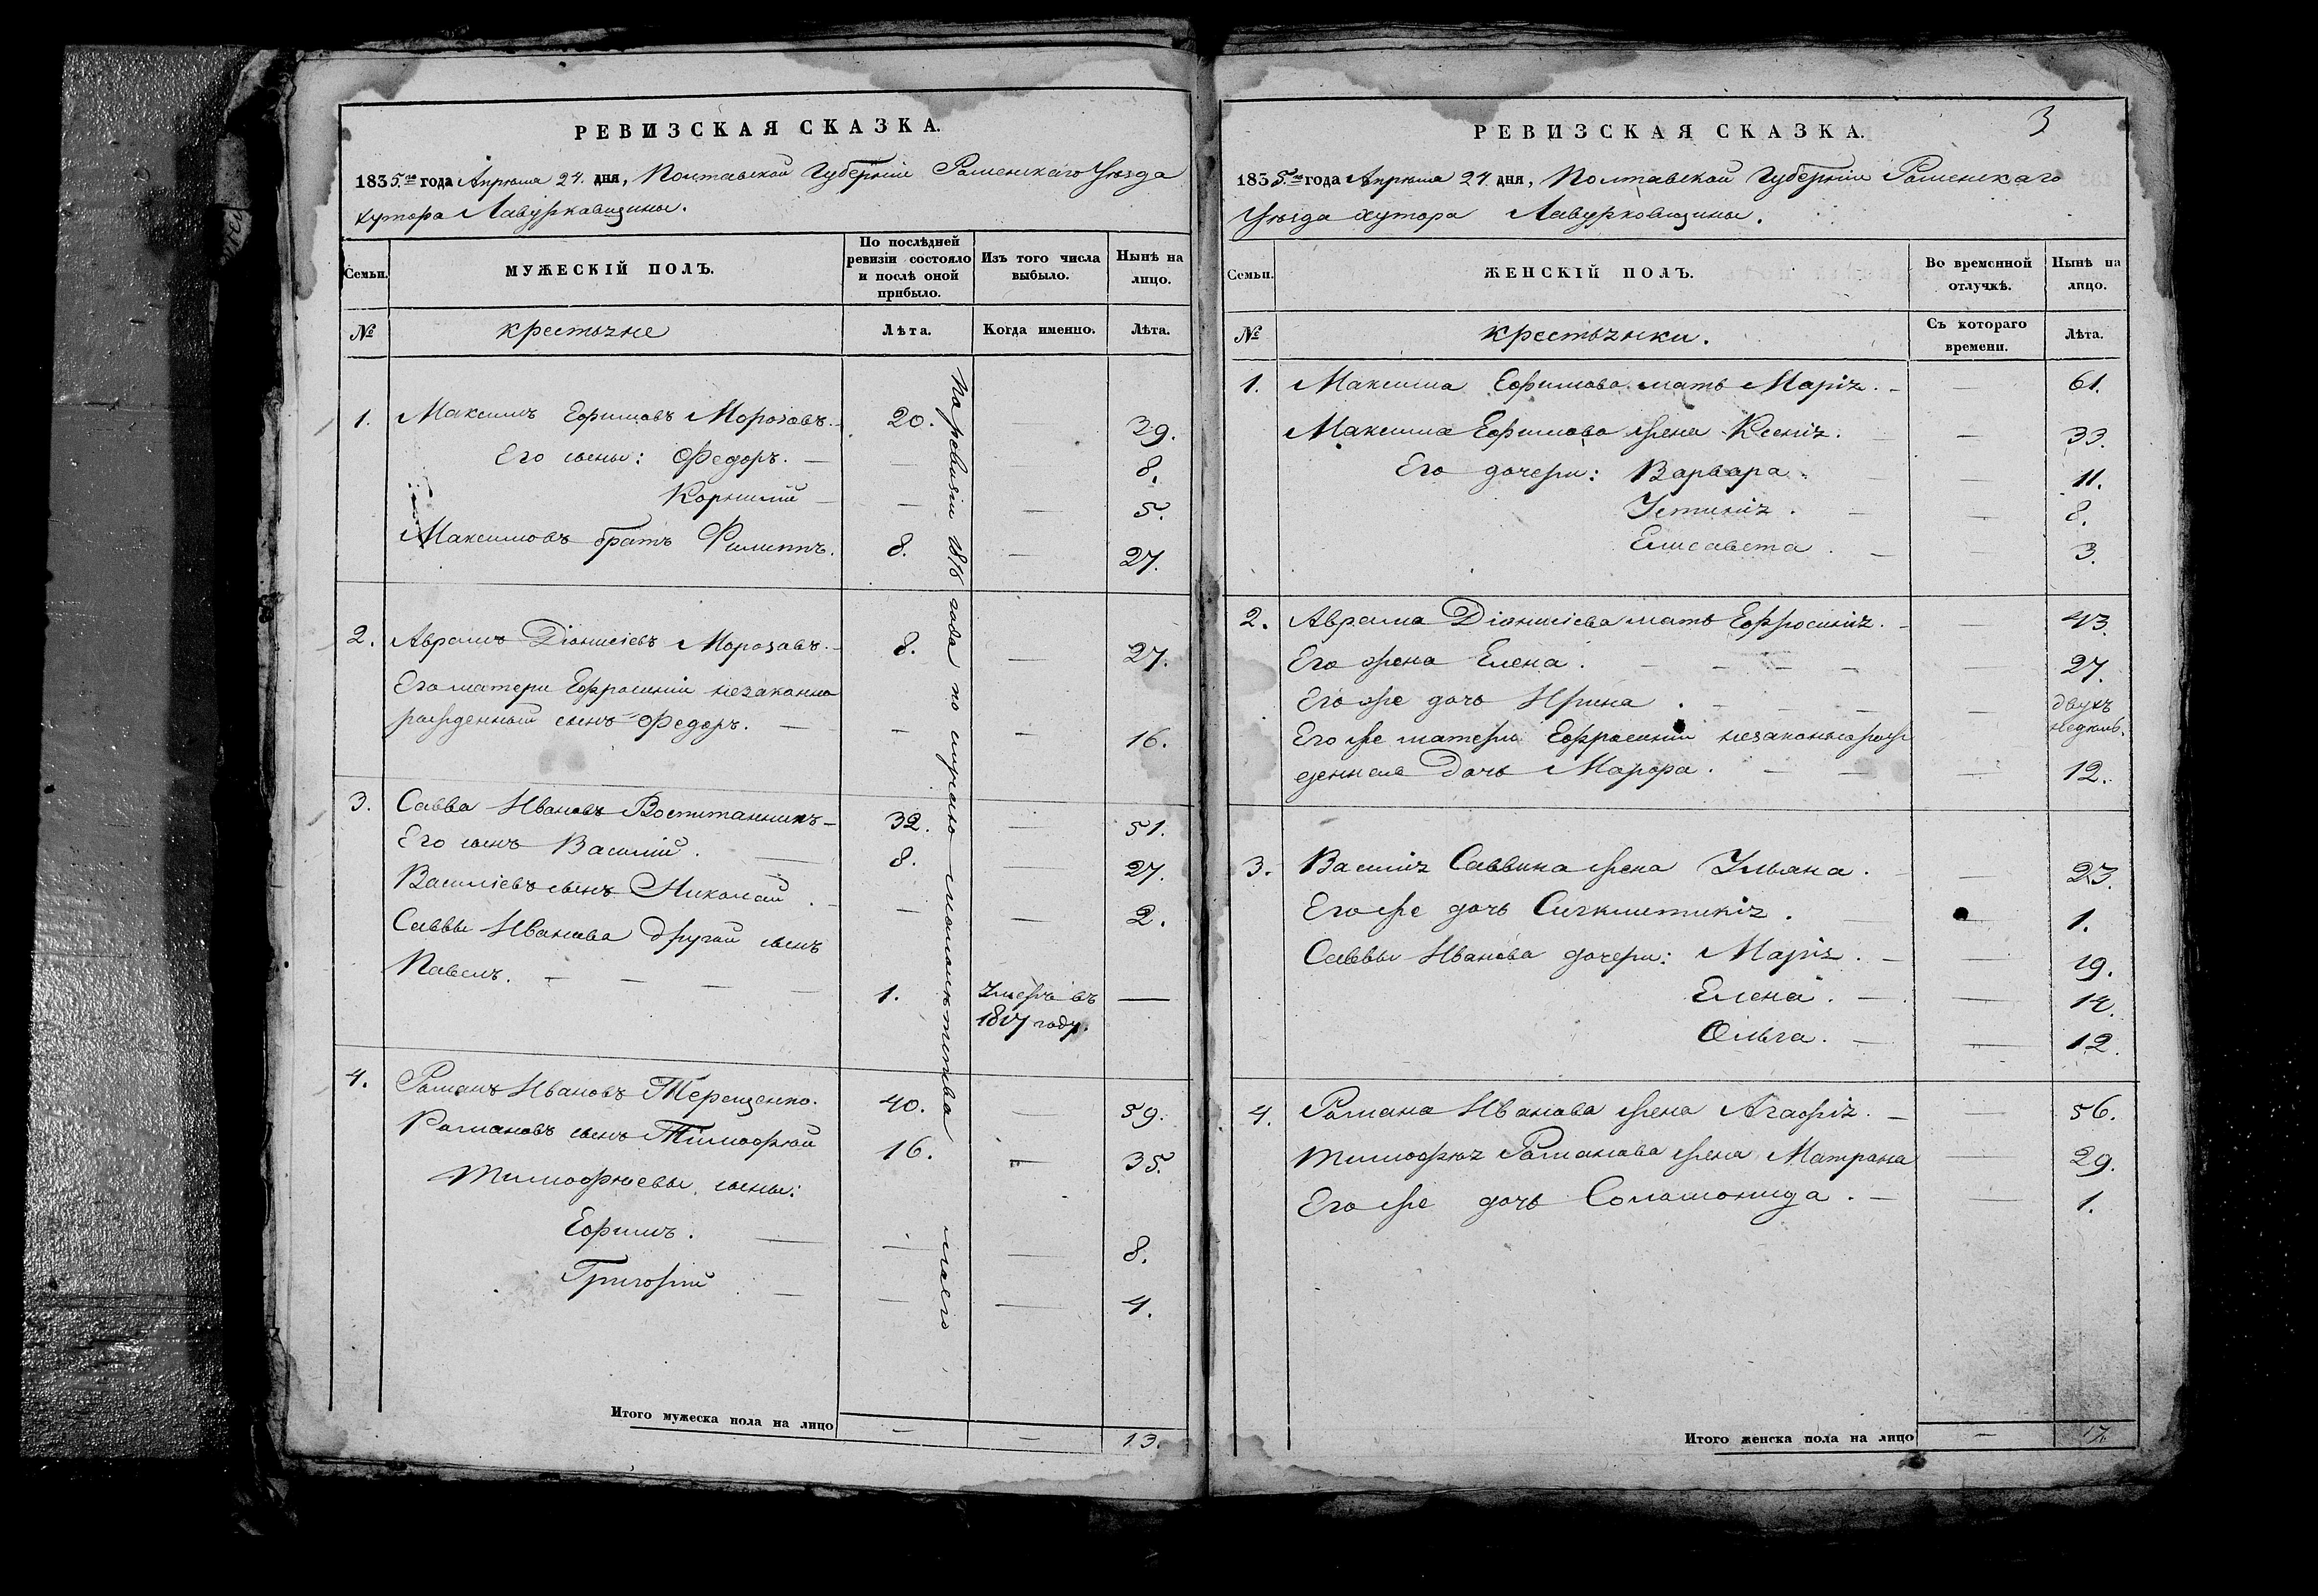 РЕВИЗСКАЯ СКАЗКА.
1835.го года Апреля 24. дня, Полтавской Губерніи Роменскаго Уезда
хутора Лавурковщины.
Семьи.
МУЖЕСКІЙ ПОЛЪ.
По послѣдней ревизіи состояло и послѣ оной прибыло.
Изъ того числа выбыло.
Нынѣ на лицо.
№
крестьяне
Лѣта.
Когда именно.
Лѣта.
По ревизіи 1816 года по страшно моего
1. Максимъ Ефимовъ Морозовъ. 20. — 39.
Его сыны: Федоръ. — — — 8.
Корнилій — — — 5.
Максимовъ братъ Филиппъ. 8. — 27.
2. Аврамъ Діонисіевъ Морозовъ. 8. — 27.
Его матери Ефросиніи незаконно
рожденный сынъ Федоръ. — — — 16.
3. Савва Ивановъ Воспитанникъ — 32. — 51.
Его сынъ Василій. — 8. — 27.
Василіевъ сынъ Николай. — — 2.
Саввы Иванова другой сынъ
Павелъ. — — — — 1. Умеръ въ —
1817 году.
4. Романъ Ивановъ Терещенко. 40. — 59.
Романовъ сынъ Тимофѣй 16. — 35.
Тимофѣевы сыны:
Ефимъ. — — — 8.
Григорій — — — 4.
Итого мужеска пола на лицо — — 13.
3
РЕВИЗСКАЯ СКАЗКА.
1835.го года Апреля 24. дня, Полтавской Губерніи Роменскаго
Уезда хутора Лавурковщины.
Семьи.
ЖЕНСКІЙ ПОЛЪ.
Во временной отлучкѣ.
Нынѣ на лицо.
№
крестьянки.
Съ котораго времени.
Лѣта.
1. Максима Ефимова мать Марія. — — 61.
Максима Ефимова жена Ксенія. — — 33.
Его дочери: Варвара. — — 11.
Устинія. — — 8.
Елисавета. — — 3.
2. Аврама Діонисіева мать Ефросинія. — — 43.
Его жена Елена. — — — — — 27.
Его же дочь Ирина. — — — — двухъ
недель.
Его же матери Ефросиніи незаконнорож
денная дочь Марфа. — — — 12.
3. Василія Саввина жена Ульяна. — — 23.
Его же дочь Сигклитикія. — 1.
Саввы Иванова дочери: Марія. — — 19.
Елена. — — 14.
Ольга. — — 12.
4. Романа Иванова жена Агафія. — — 56.
Тимофѣя Романова жена Матрона — 29.
Его же дочь Соломонида. — — 1.
Итого женска пола на лицо — 17.